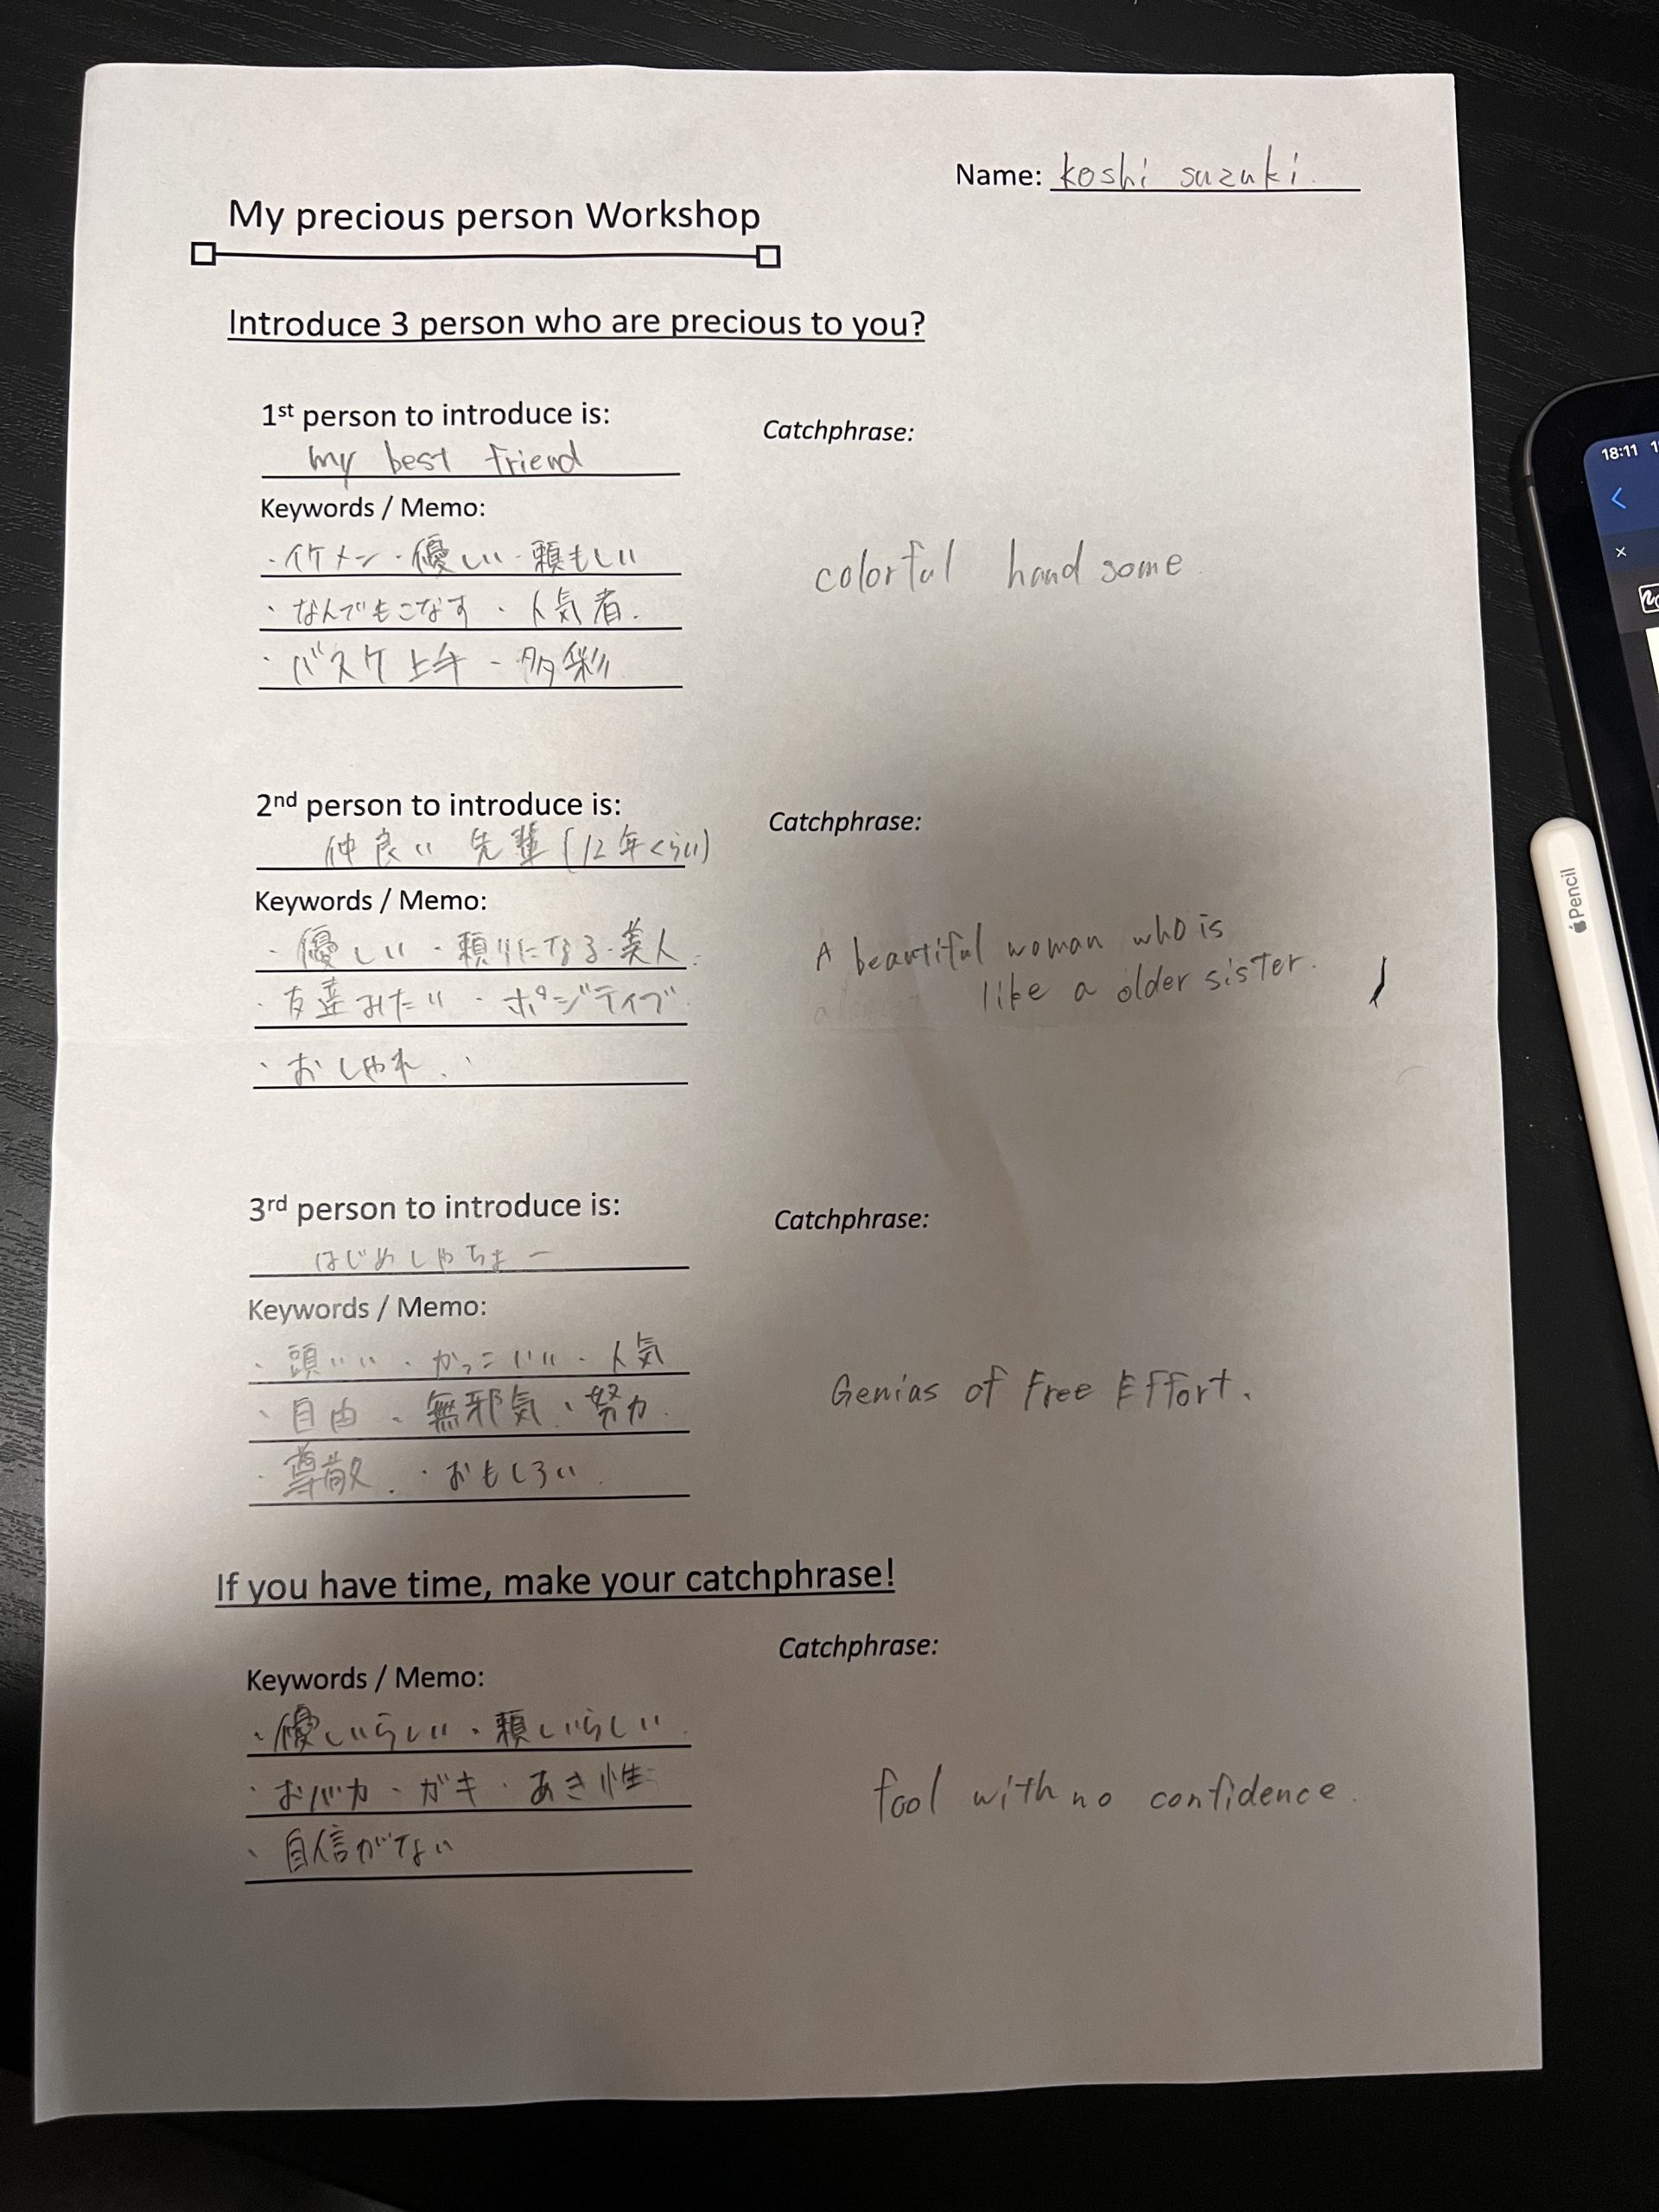 Name: koshi suzuki.
My precious person Workshop
Introduce 3 person who are precious to you?
1st person to introduce is:
my best friend
Catchphrase:
Keywords / Memo:
・イケメン・優しい・頼もしい
・なんでもこなす・人気者.
・バスケ上手・多彩
colorful handsome.
2nd person to introduce is:
仲良い 先輩(12年くらい)
Catchphrase:
Keywords / Memo:
・優しい・頼りになる・美人.
・友達みたい・ポジティブ
・おしゃれ.
A beautiful woman who is
like a older sister.
3rd person to introduce is:
はじめしゃちょー
Catchphrase:
Keywords / Memo:
・頭いい・かっこいい・人気
・自由・無邪気・努力.
・尊敬.・おもしろい.
Genias of Free Effort.
If you have time, make your catchphrase!
Catchphrase:
Keywords / Memo:
・優しいらしい・頼しいらしい.
・おバカ・ガキ・あき性
・自信がない
fool with no confidence.
18:11
Pencil